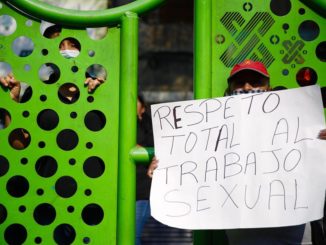 RESPETO
TOTAL AL
TRABAJO
SEXUAL